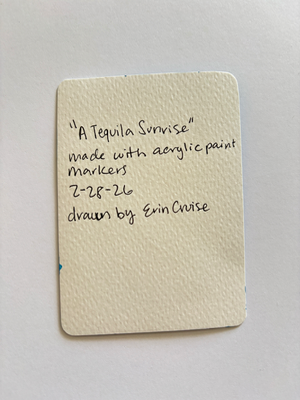 "A Tequila Sunrise"
made with acrylic paint
markers
2-28-26
drawn by Erin Cruise